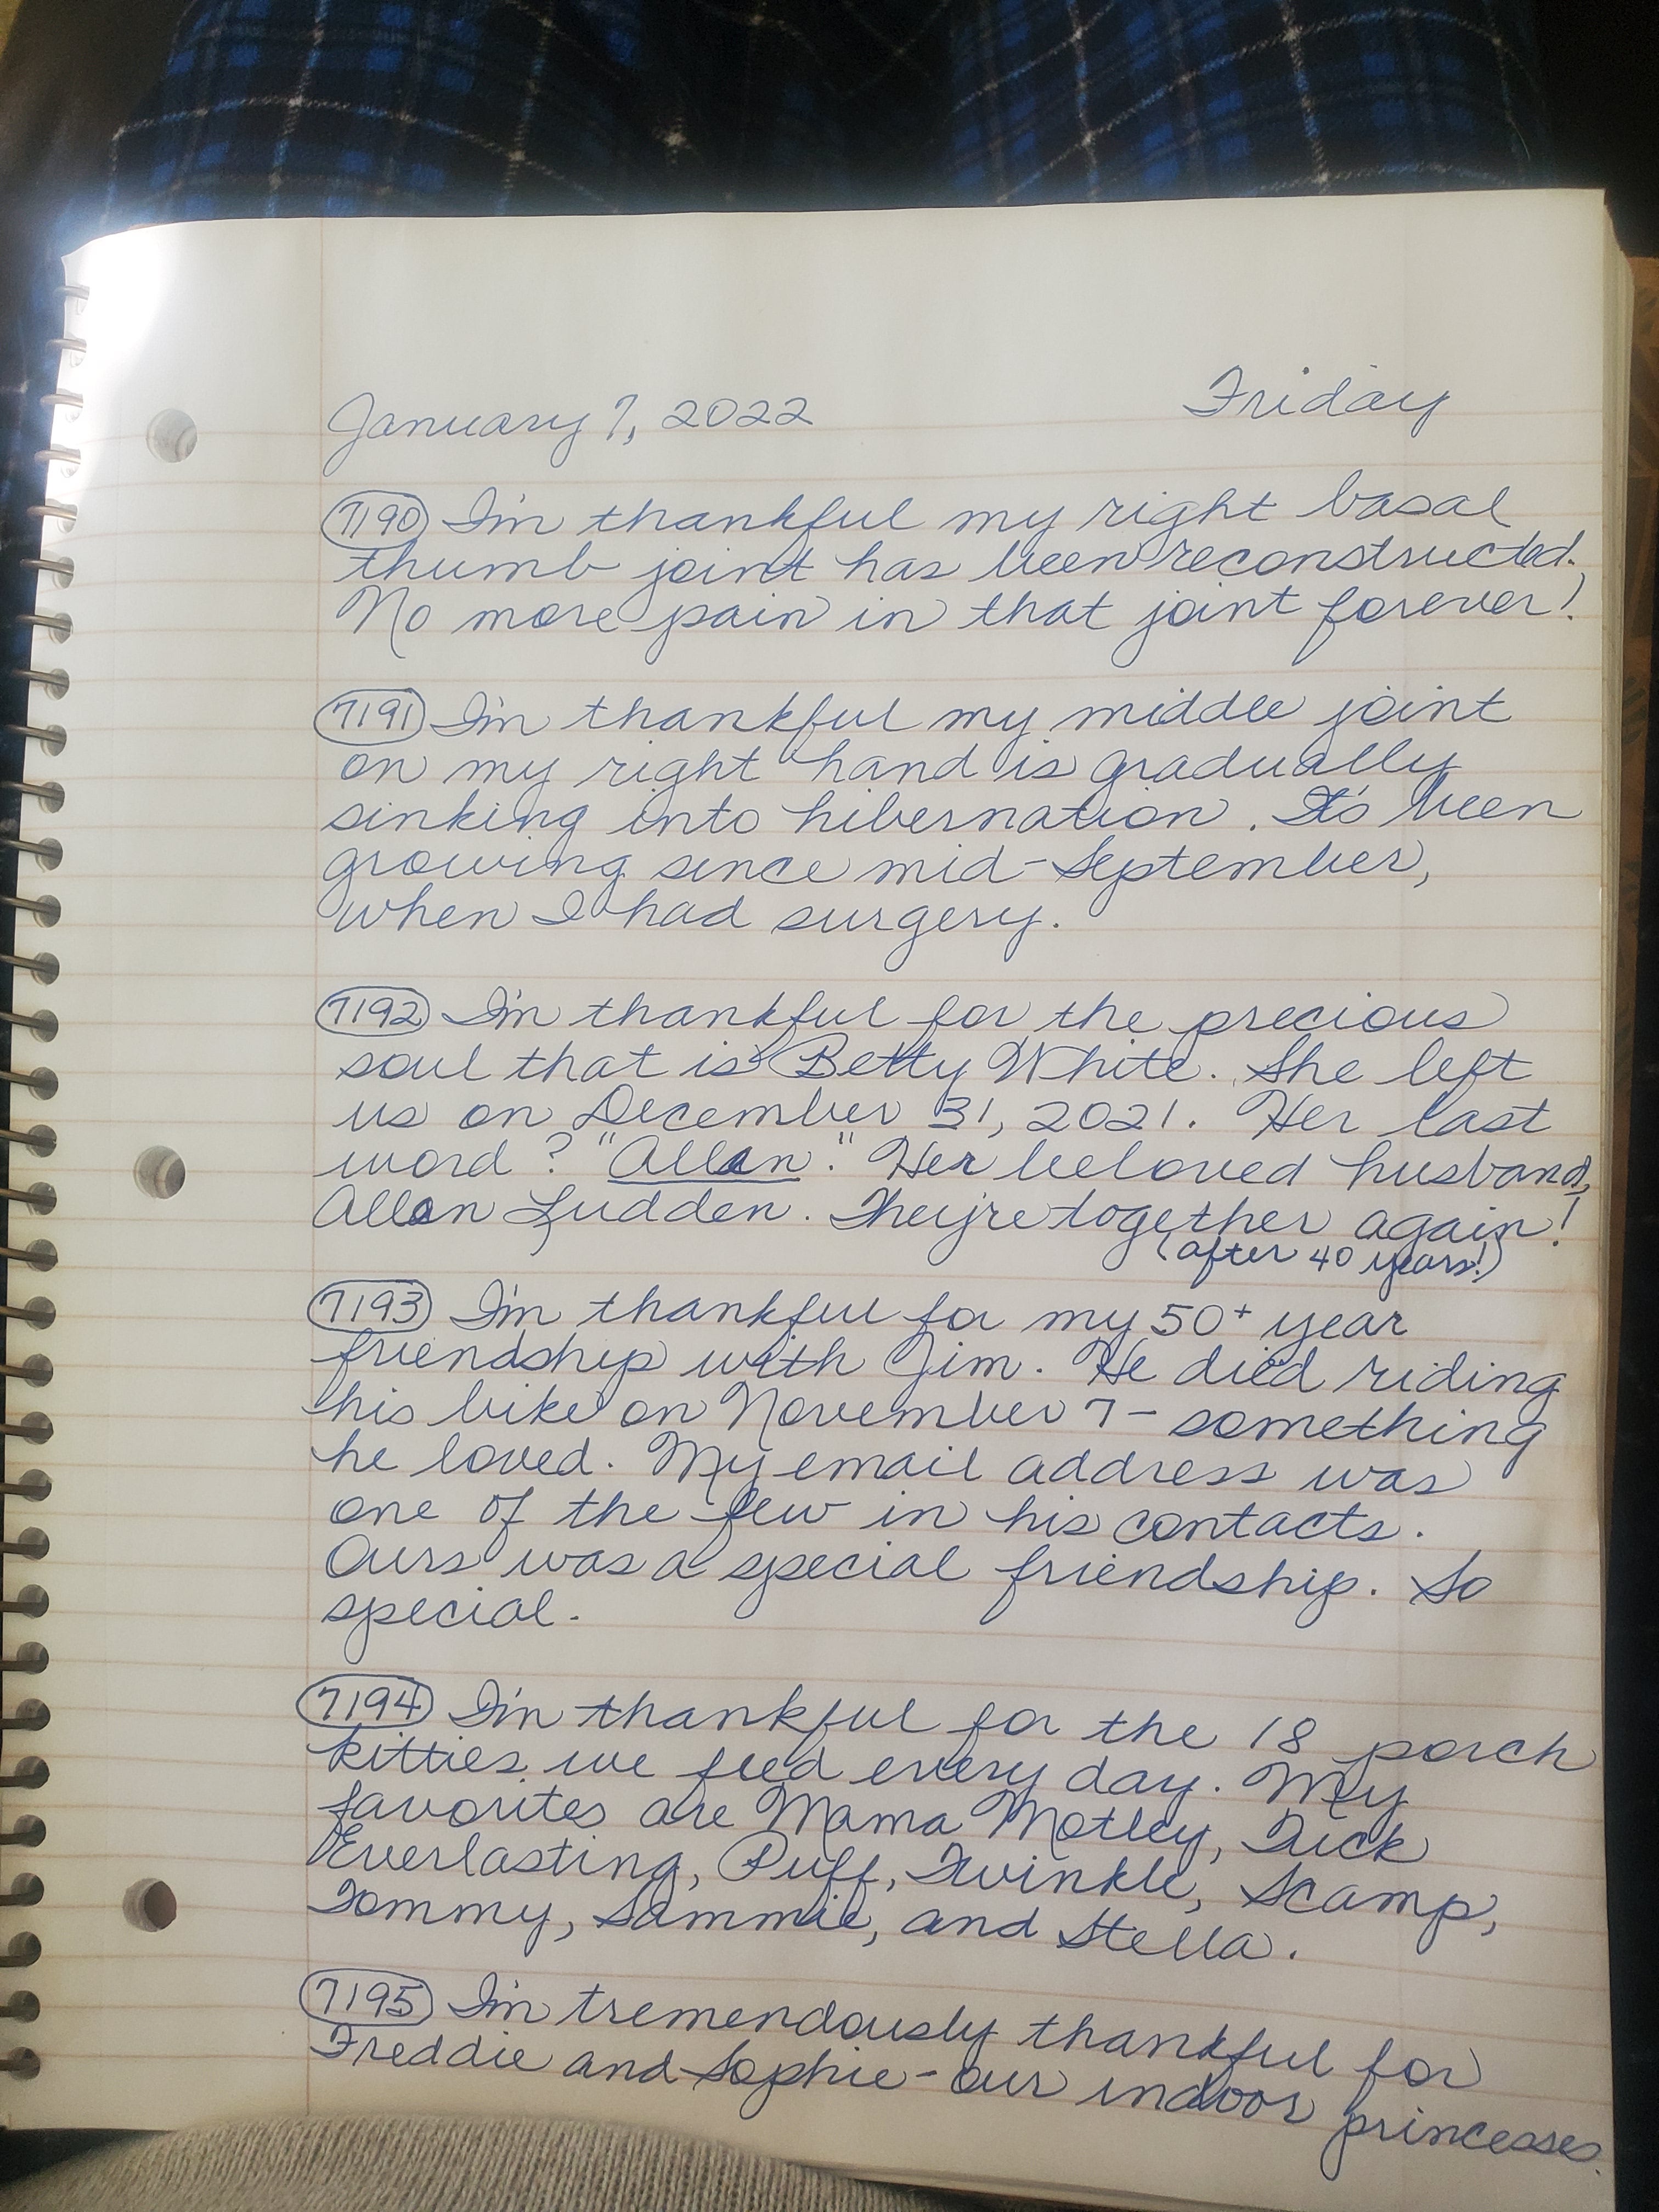 January 7, 2022 Friday
7190 I'm thankful my right basal
thumb joint has been reconstructed.
No more pain in that joint forever!
7191 I'm thankful my middle joint
on my right hand is gradually
sinking into hibernation. It's been
growing since mid-September,
when I had surgery.
7192 I'm thankful for the precious
soul that is Betty White. She left
us on December 31, 2021. Her last
word? "Allan." Her beloved husband,
Allan Ludden. They're together again!
(after 40 years!)
7193 I'm thankful for my 50+ year
friendship with Jim. He died riding
his bike on November 7 - something
he loved. My email address was
one of the few in his contacts.
Ours was a special friendship. So
special.
7194 I'm thankful for the 18 porch
kitties we feed every day. My
favorites are Mama Motley, Tuck
Everlasting, Puff, Twinkle, Scamp,
Tommy, Sammie, and Stella.
7195 I'm tremendously thankful for
Freddie and Sophie - our indoor princesses.